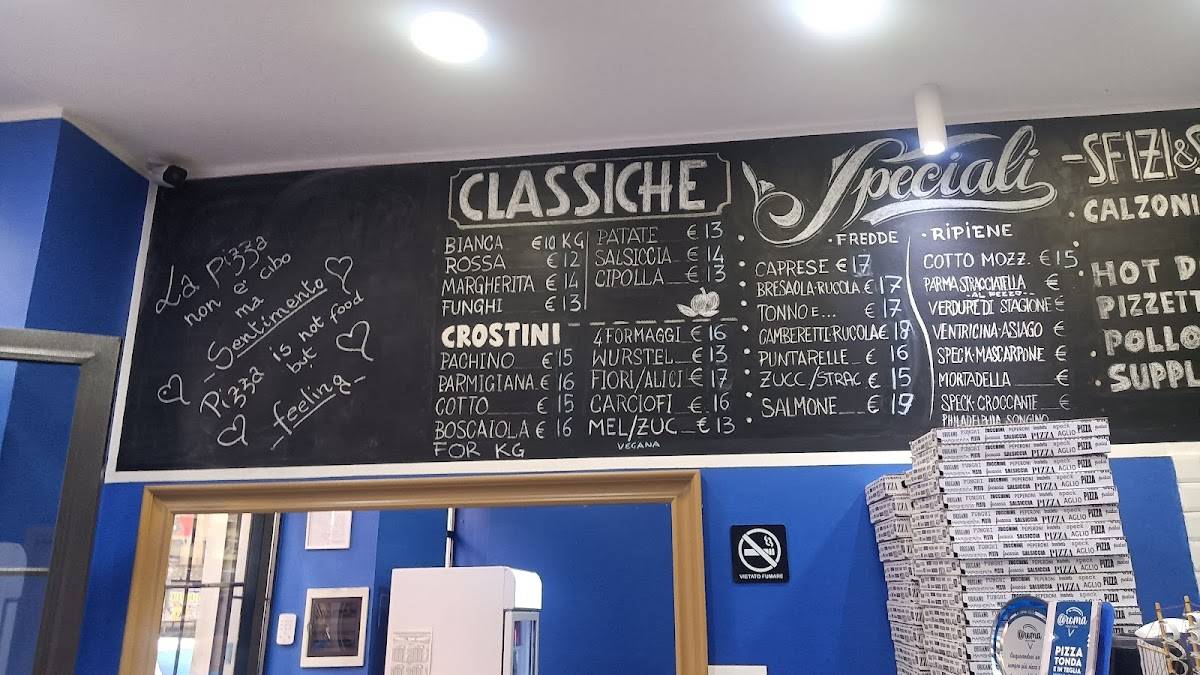 La pizza
non e'
cibo
ma
-Sentimento
Pizza is not food
but
-feeling-
CLASSICHE
BIANCA €10 KG
ROSSA € 12
MARGHERITA € 14
FUNGHI € 13
PATATE € 13
SALSICCIA € 14
CIPOLLA € 13
CROSTINI
PACHINO € 15
PARMIGIANA € 16
COTTO € 15
BOSCAIOLA € 16
FOR KG
4 FORMAGGI € 16
WURSTEL € 13
FIORI/ALICI € 17
CARCIOFI € 16
MEL/ZUC € 13
VEGANA
Speciali
• FREDDE
CAPRESE € 17
BRESAOLA-RUCOLA € 17
TONNO E... € 17
GAMBERETTI-RUCOLA € 18
PUNTARELLE € 16
ZUCC/STRAC € 15
SALMONE € 19
• RIPIENE
COTTO MOZZ. € 15
PARMA STRACCIATELLA €
-AL PEZZO-
VERDURE DI STAGIONE €
VENTRICINA-ASIAGO €
SPECK-MASCARPONE €
MORTADELLA €
SPECK-CROCCANTE €
PHILADELPHIA SONGINO
-SFIZI&
CALZONI
HOT
PIZZETT
POLLO
SUPPL
VIETATO FUMARE
@roma
PIZZA
TONDA
E IN TEGLIA